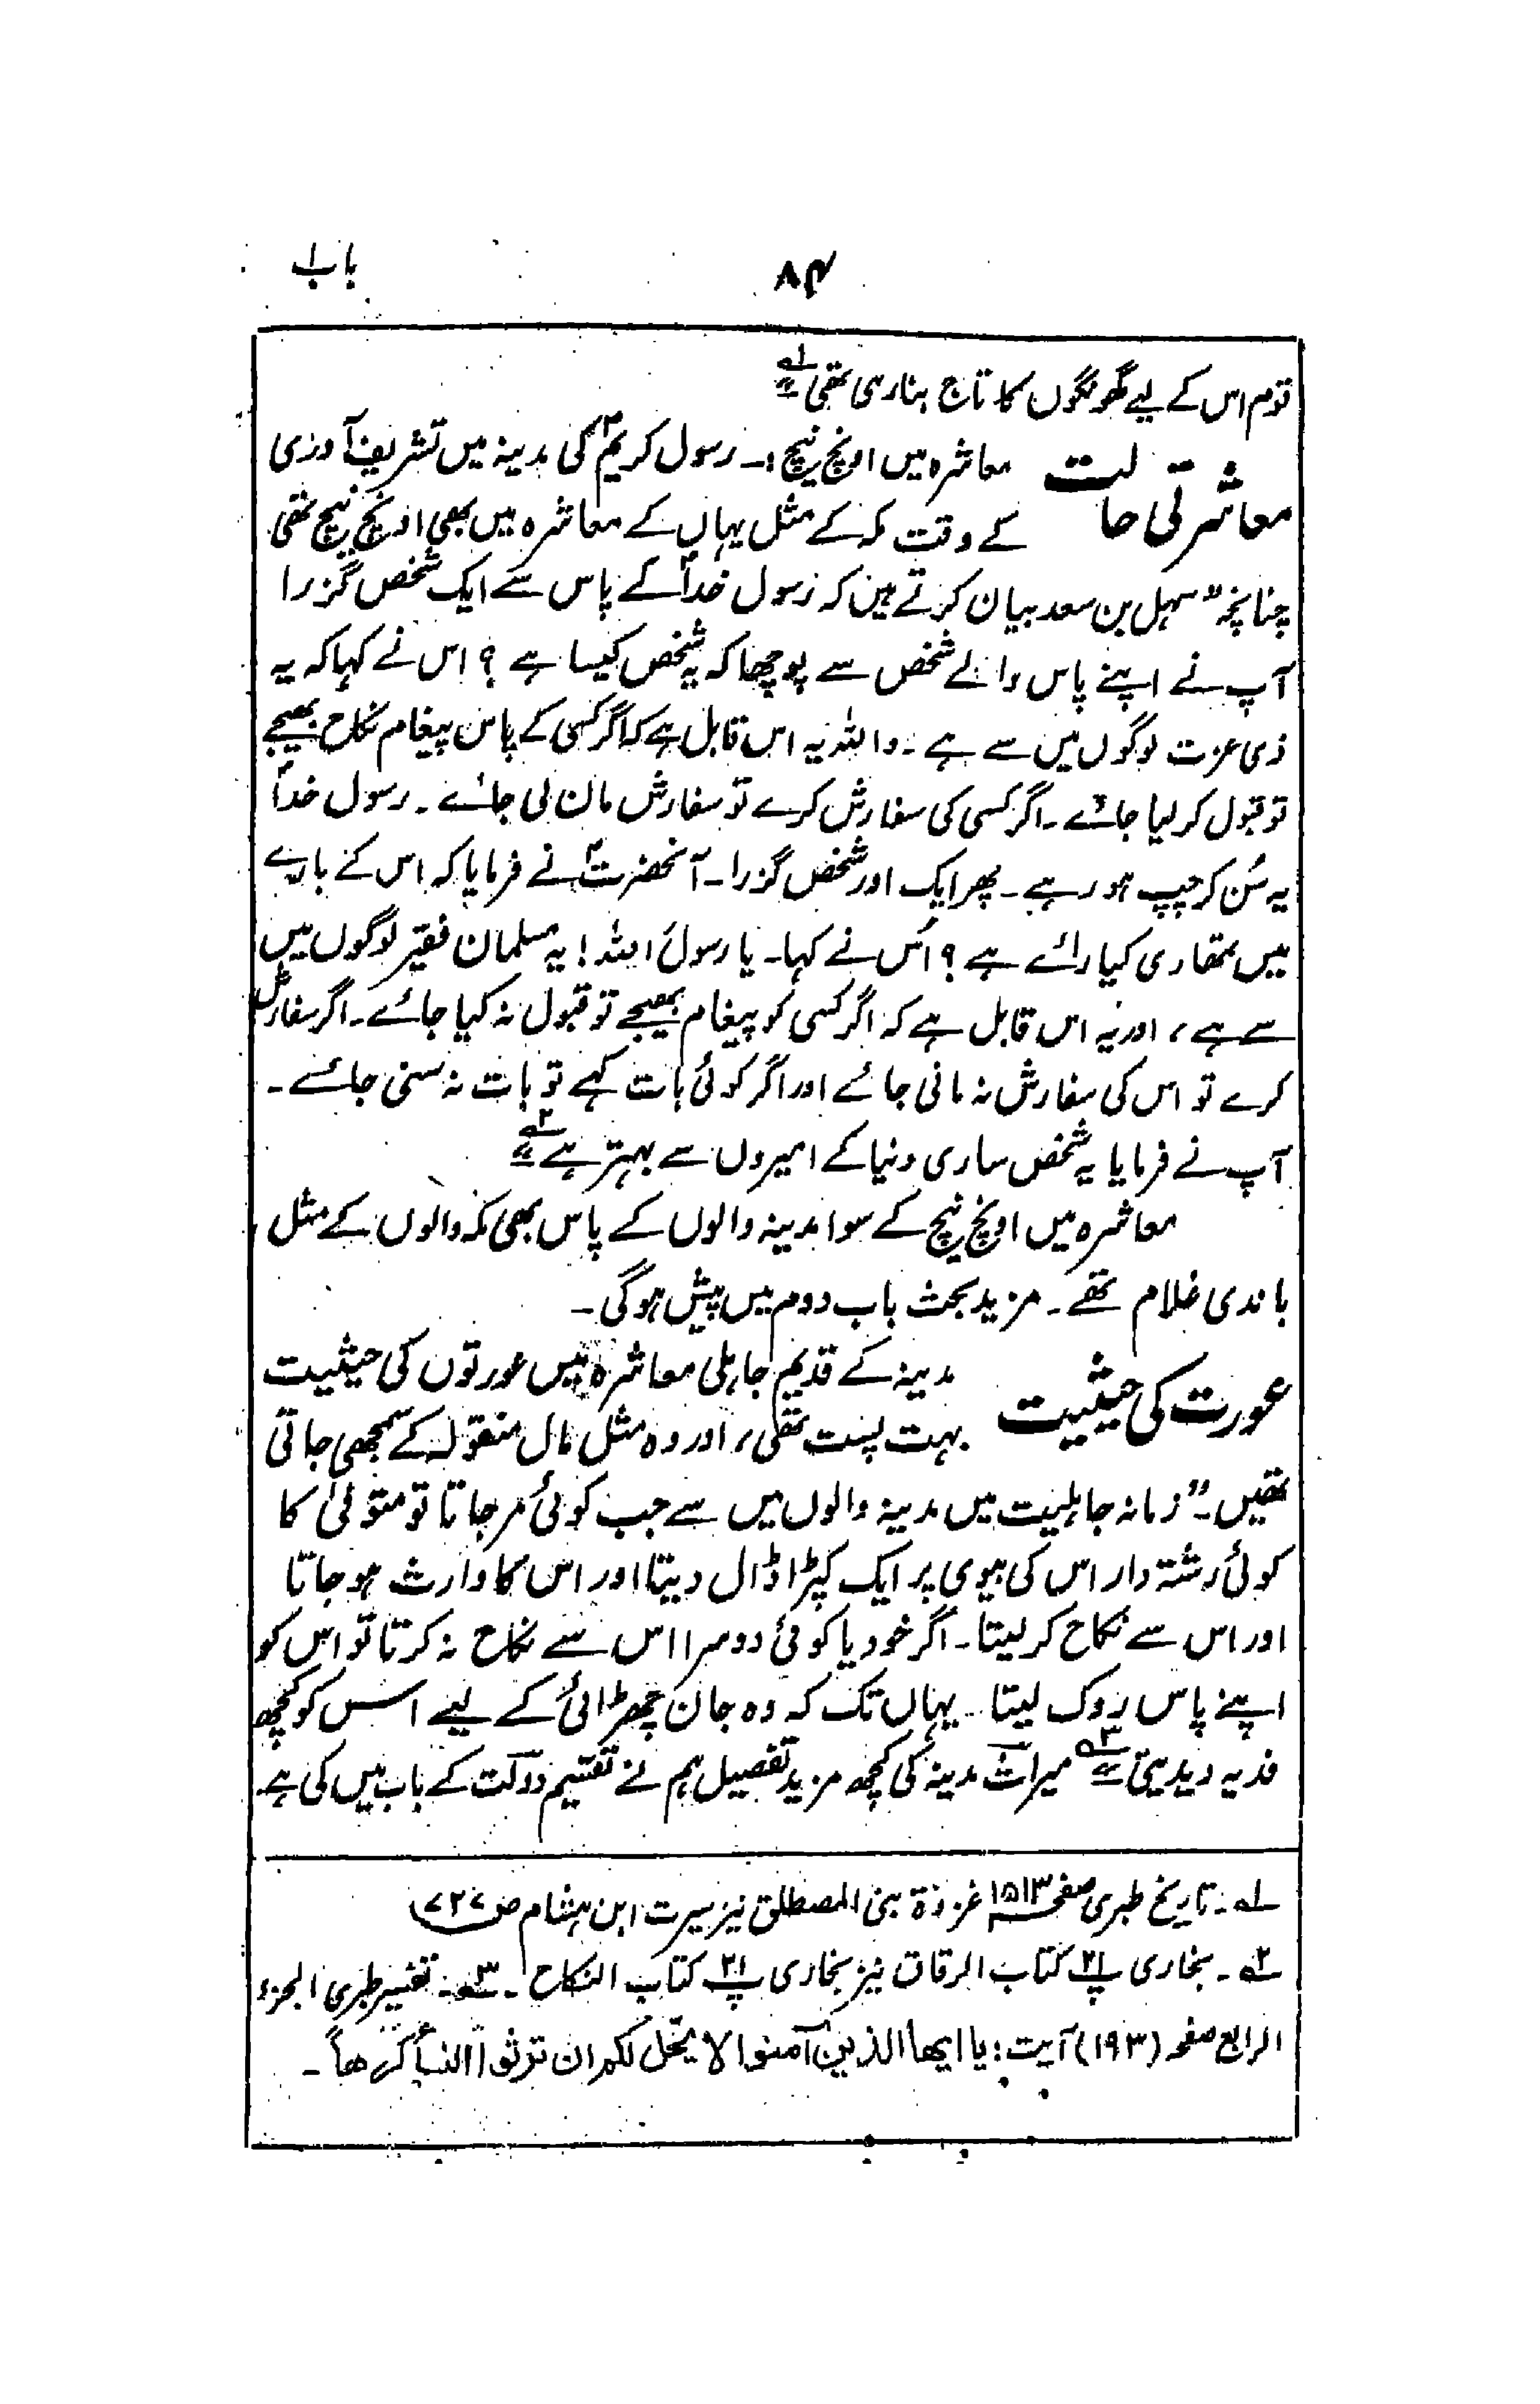 ۸۴
باب ۱
قوم اس کے لیے گھونگوں کا تاج بنا رہی تھی ۱؎"
معاشرتی حالت
معاشرہ میں اونچ نیچ :۔ رسول کریمؐ کی مدینہ میں تشریف آوری
کے وقت مکہ کے مثل یہاں کے معاشرہ میں بھی اونچ نیچ تھی
چنانچہ "سہل بن سعد بیان کرتے ہیں کہ رسول خداؐ کے پاس سے ایک شخص گزرا
آپ نے اپنے پاس والے شخص سے پوچھا کہ یہ شخص کیسا ہے ؟ اس نے کہا کہ یہ
ذی عزت لوگوں میں سے ہے ۔ واللہ یہ اس قابل ہے کہ اگر کسی کے پاس پیغام نکاح بھیجے
تو قبول کر لیا جائے ۔ اگر کسی کی سفارش کرے تو سفارش مان لی جائے ۔ رسول خداؐ
یہ سُن کر چپ ہو رہے ۔ پھر ایک اور شخص گزرا ۔ آنحضرتؐ نے فرمایا کہ اس کے بارے
میں تمھاری کیا رائے ہے ؟ اُس نے کہا ۔ یا رسول اللہ ! یہ مسلمان فقیر لوگوں میں
سے ہے ، اور یہ اس قابل ہے کہ اگر کسی کو پیغام بھیجے تو قبول نہ کیا جائے ۔ اگر سفارش
کرے تو اس کی سفارش نہ مانی جائے اور اگر کوئی بات کہے تو بات نہ سنی جائے ۔
آپ نے فرمایا یہ شخص ساری دنیا کے امیروں سے بہتر ہے ۲؎"
معاشرہ میں اونچ نیچ کے سوا مدینہ والوں کے پاس بھی مکہ والوں کے مثل
باندی غلام تھے ۔ مزید بحث باب دوم میں پیش ہوگی ۔
عورت کی حیثیت
مدینہ کے قدیم جاہلی معاشرہ میں عورتوں کی حیثیت
بہت پست تھی ، اور وہ مثل مال منقولہ کے سمجھی جاتی
تھیں ۔ "زمانہ جاہلیت میں مدینہ والوں میں سے جب کوئی مر جاتا تو متوفیٰ کا
کوئی رشتہ دار اس کی بیوی پر ایک کپڑا ڈال دیتا اور اس کا وارث ہو جاتا
اور اس سے نکاح کر لیتا ۔ اگر خود یا کوئی دوسرا اس سے نکاح نہ کرتا تو اس کو
اپنے پاس روک لیتا ۔ یہاں تک کہ وہ جان چھڑائی کے لیے اس کو کچھ
فدیہ دیدیتی ۳؎" میراث مدینہ کی کچھ مزید تفصیل ہم نے تقسیم دولت کے باب میں کی ہے
۱؎ ۔ تاریخ طبری صفحہ ۱۵۱۳ غزوۃ بنی المصطلق نیز سیرت ابن ہشام ص ۷۲۷
۲؎ ۔ بخاری پ ۲۱ کتاب الرقاق نیز بخاری پ ۲۱ کتاب النکاح ۔ ۳؎ ۔ تفسیر طبری الجزء
الرابع صفحہ (۱۹۳) آیت : یا ایھا الذین آمنوا لا یحل لکم ان ترثوا النسأ کرھاً ۔